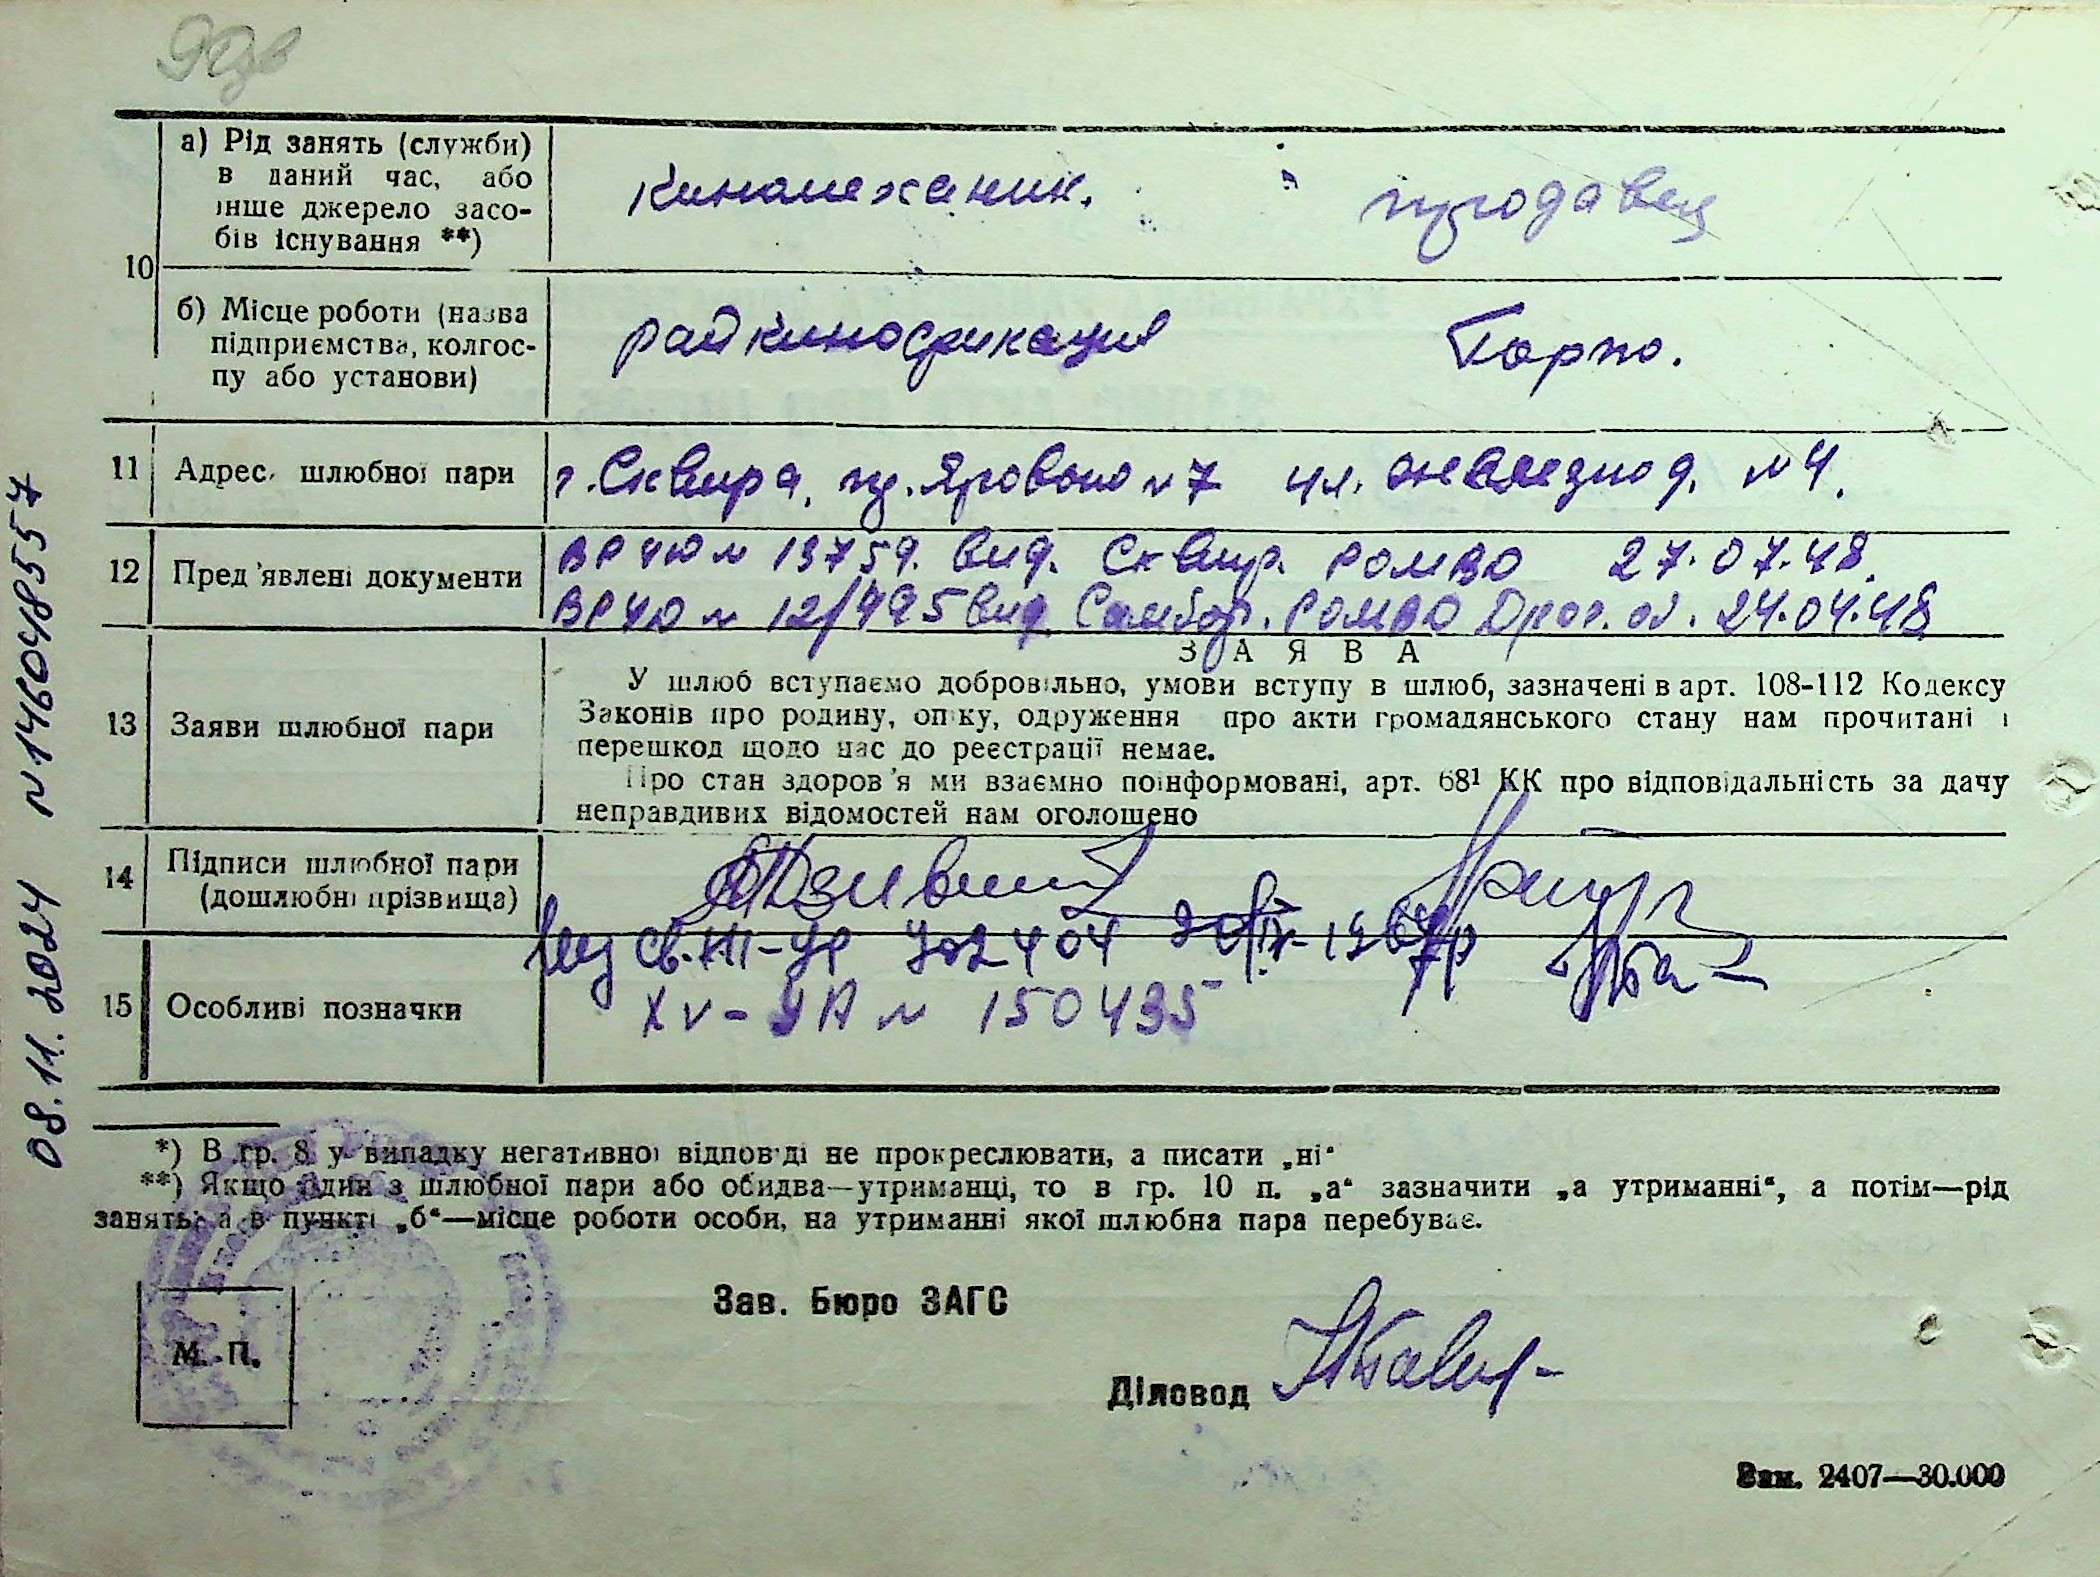 10
а) Рід занять (служби)
в даний час, або
інше джерело засо-
бів існування **)
киномеханик.
продавец
б) Місце роботи (назва
підприємства, колгос-
пу або установи)
райкинофикация
Торго.
11
Адрес. шлюбної пари
г. Сквира, пр. Ярового №7 ул. железнод. №4.
12
Пред'явлені документи
ВР ЧЮ № 13759. вид. Сквир. РОМВО 27.07.48.
ВР ЧЮ № 12/495 вид Самбор. РОМВО Дрог. об. 24.04.48
13
Заяви шлюбної пари
ЗАЯВА
У шлюб вступаємо добровільно, умови вступу в шлюб, зазначені в арт. 108-112 Кодексу
Законів про родину, опіку, одруження про акти громадянського стану нам прочитані і
перешкод щодо нас до реєстрації немає.
Про стан здоров'я ми взаємно поінформовані, арт. 68¹ КК про відповідальність за дачу
неправдивих відомостей нам оголошено
14
Підписи шлюбної пари
(дошлюбні прізвища)
св. III-УР 702404
15
Особливі позначки
XV-УА № 150435
*) В гр. 8 у випадку негативної відповіді не прокреслювати, а писати „ні“
**) Якщо один з шлюбної пари або обидва—утриманці, то в гр. 10 п. „а“ зазначити „а утриманні“, а потім—рід
занять, а в пункті „б“—місце роботи особи, на утриманні якої шлюбна пара перебуває.
М. П.
Зав. Бюро ЗАГС
Діловод
Зам. 2407—30.000
08.11.2024 №146048557